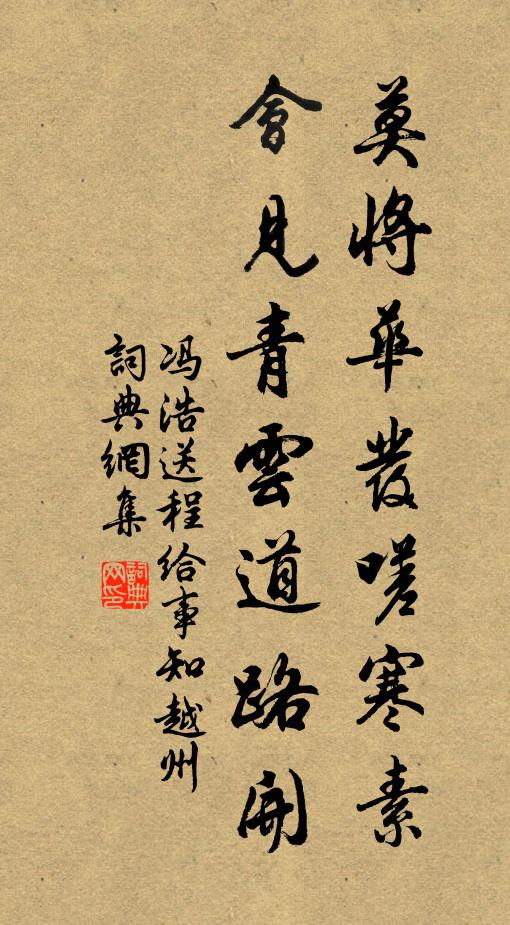 莫將華發嗟寒素
會見青雲道路開
冯浩送程给事知越州
詞典網集
詞典网印